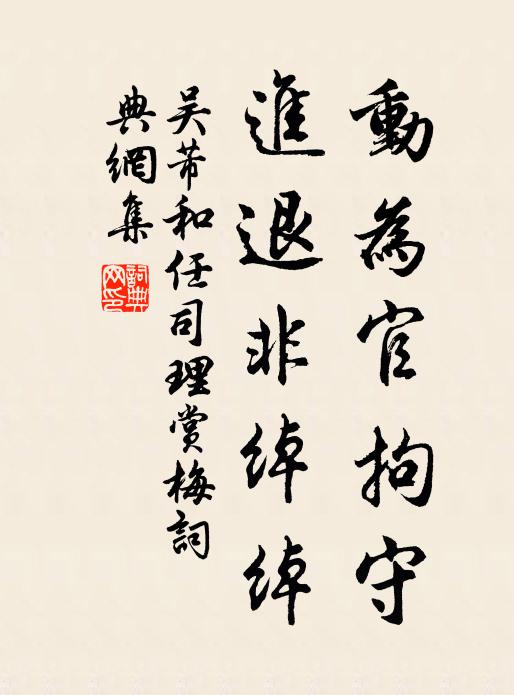 動為官拘守
進退非綽綽
吴芾和任司理賞梅詞
典網集
詞典网印